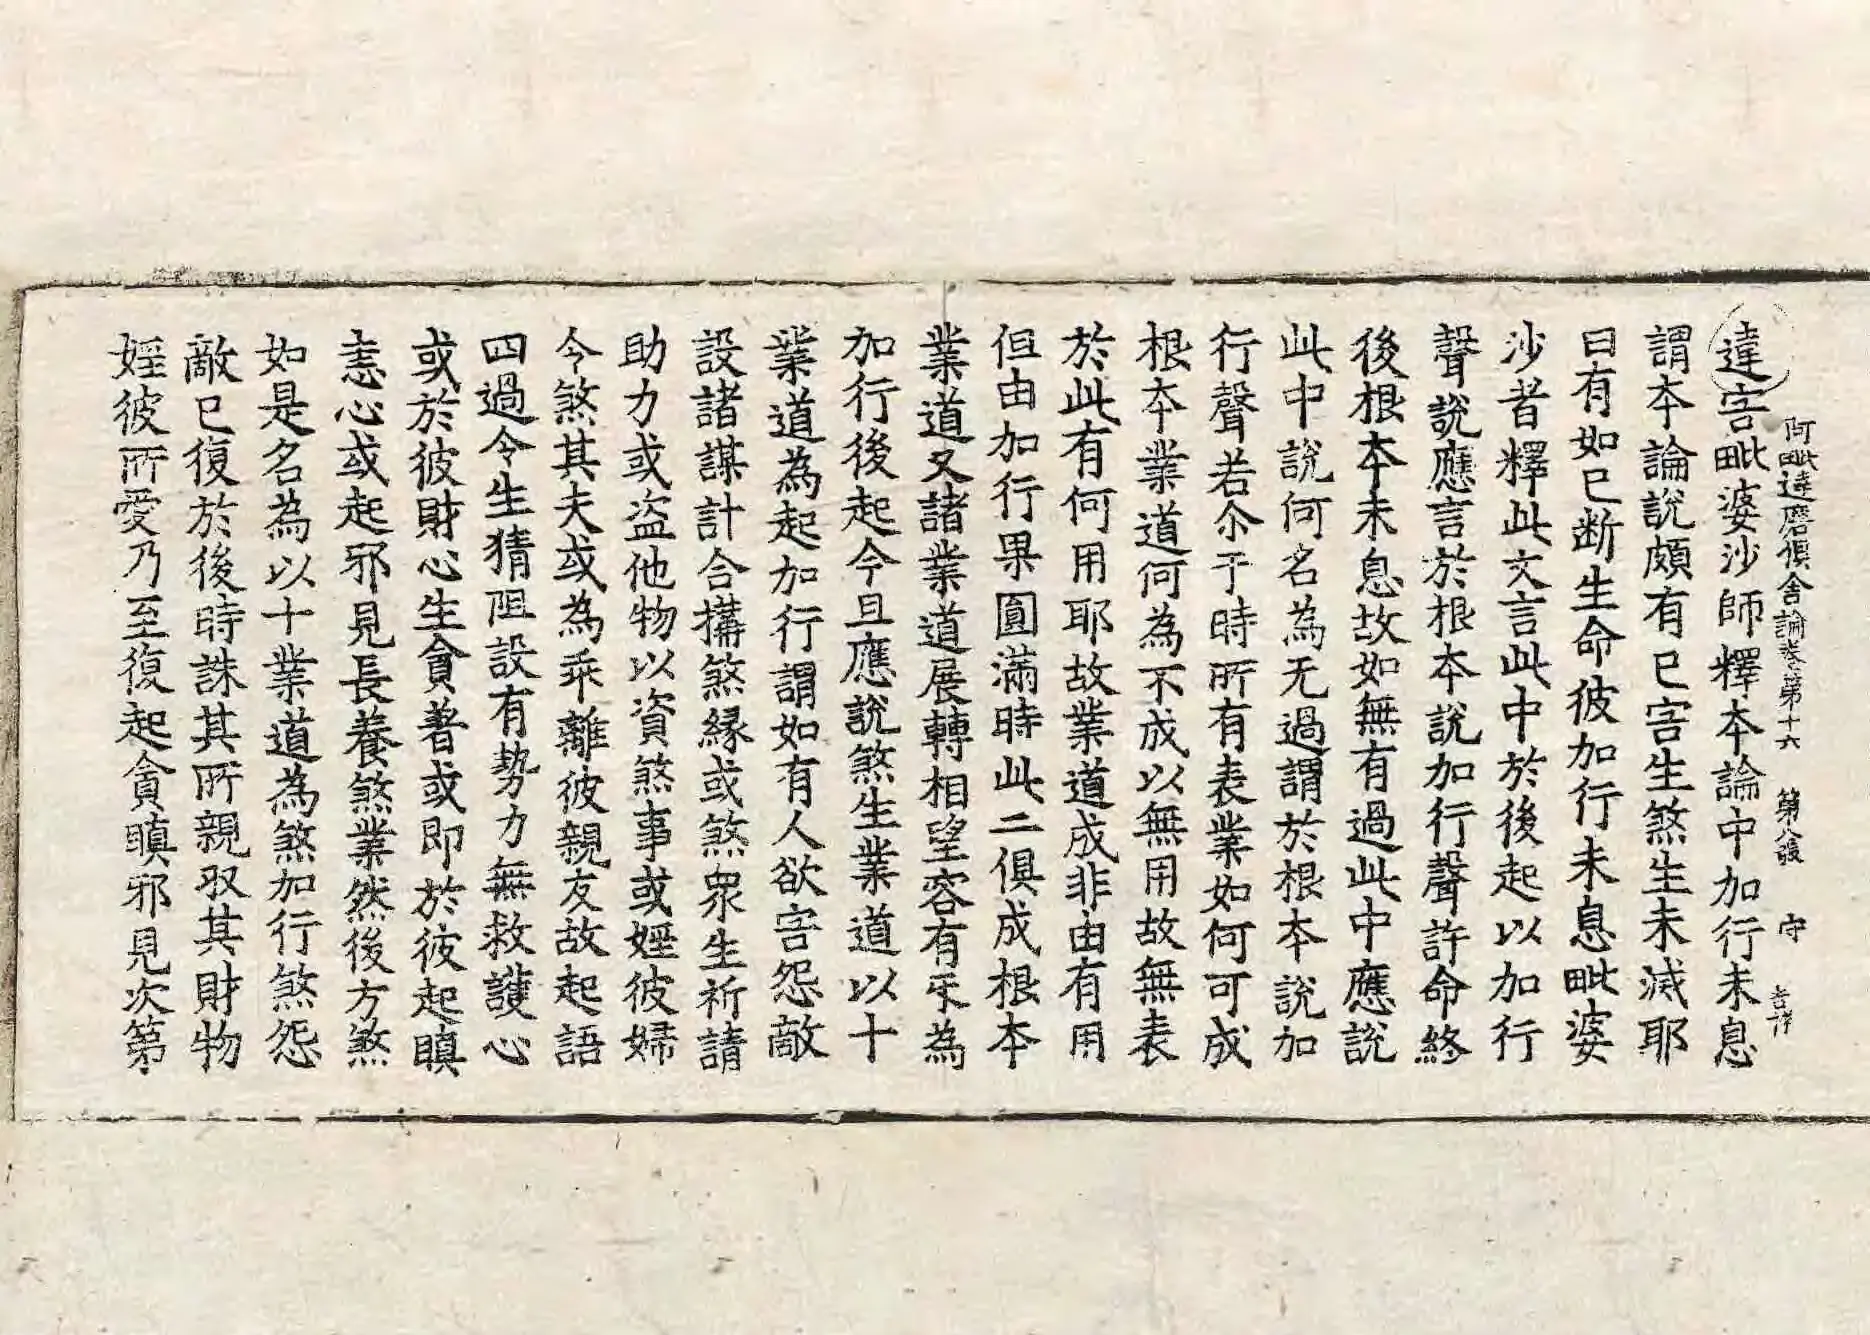 阿毗達磨俱舍論卷第十六　第八張　守
違害毗婆沙師釋本論中加行未息
謂本論說頗有已害生煞生未滅耶
曰有如已断生命彼加行未息毗婆
沙者釋此文言此中於後起以加行
聲說應言於根本說加行聲許命終
後根本未息故如無有過此中應說
此中說何名為无過謂於根本說加
行聲若尒于時所有表業如何可成
根本業道何為不成以無用故無表
於此有何用耶故業道成非由有用
但由加行果圓滿時此二俱成根本
業道又諸業道展轉相望容有㸦為
加行後起今且應說煞生業道以十
業道為起加行謂如有人欲害怨敵
設諸謀計合搆煞縁或煞衆生祈請
助力或盗他物以資煞事或婬彼婦
令煞其夫或為乖離彼親友故起語
四過令生猜阻設有勢力無救護心
或於彼財心生貪著或即於彼起瞋
恚心或起邪見長養煞業然後方煞
如是名為以十業道為煞加行煞怨
敵已復於後時誅其所親収其財物
婬彼所愛乃至復起貪瞋邪見次第